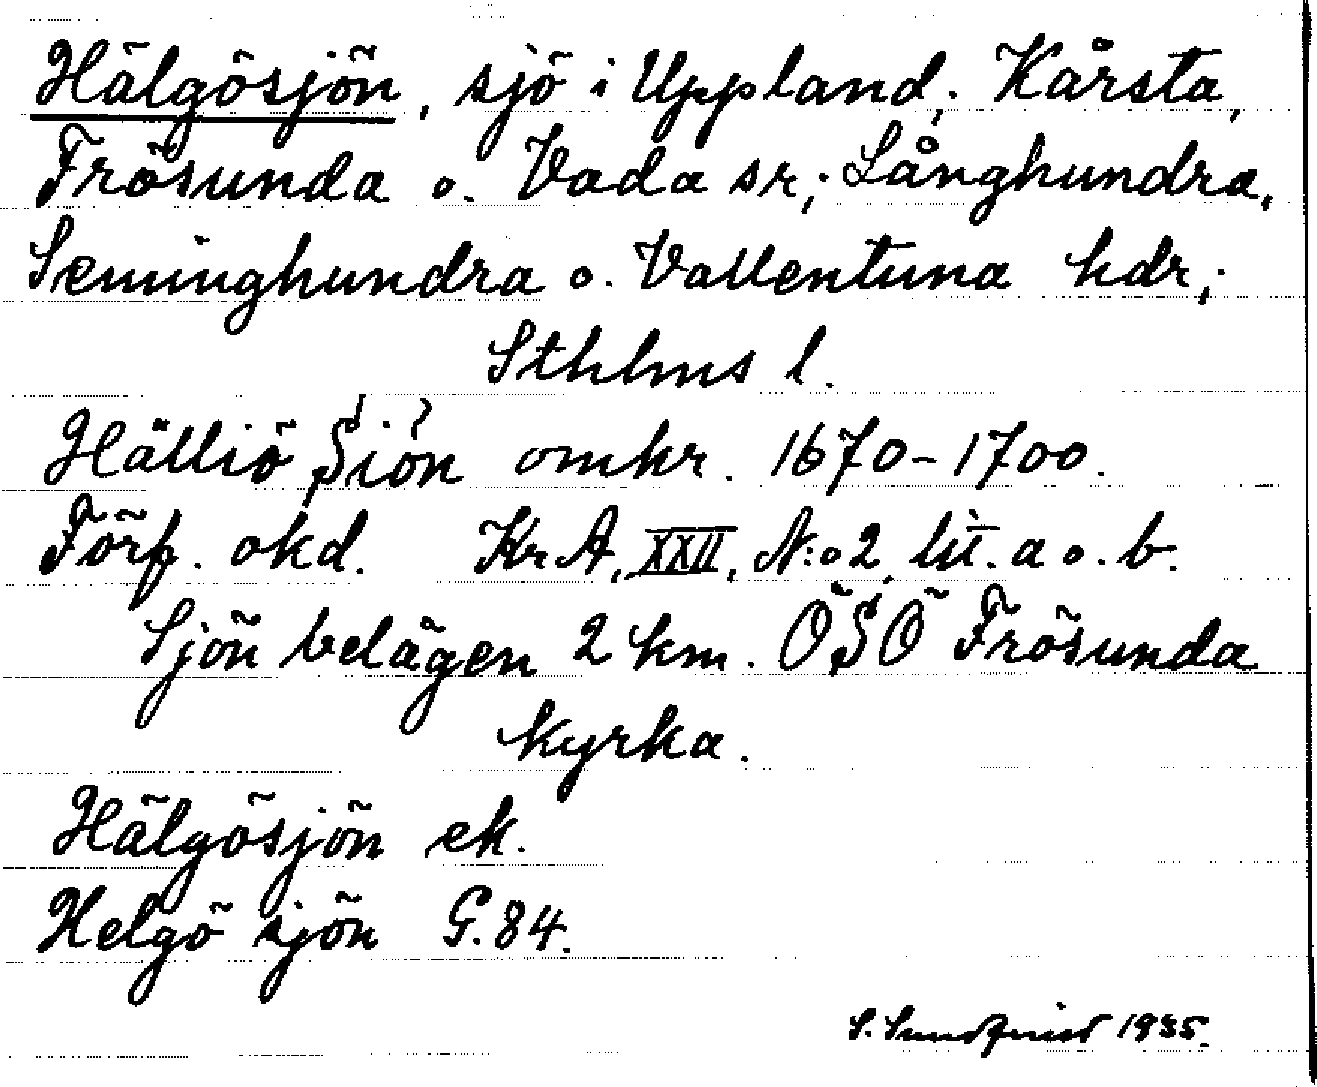 Hälgösjön, sjö i Uppland; Kårsta,
Frösunda o. Vada sr; Långhundra,
Seminghundra o. Vallentuna hdr;
Sthlms l.
Hälliö Siön omkr. 1670-1700.
Förf. okd. KrA, XXII, N:o 2, lit. a o. b.
Sjön belägen 2 km. ÖSÖ Frösunda
kyrka.
Hälgösjön ek.
Helgö sjön G. 84.
S. Sundquist 1935.